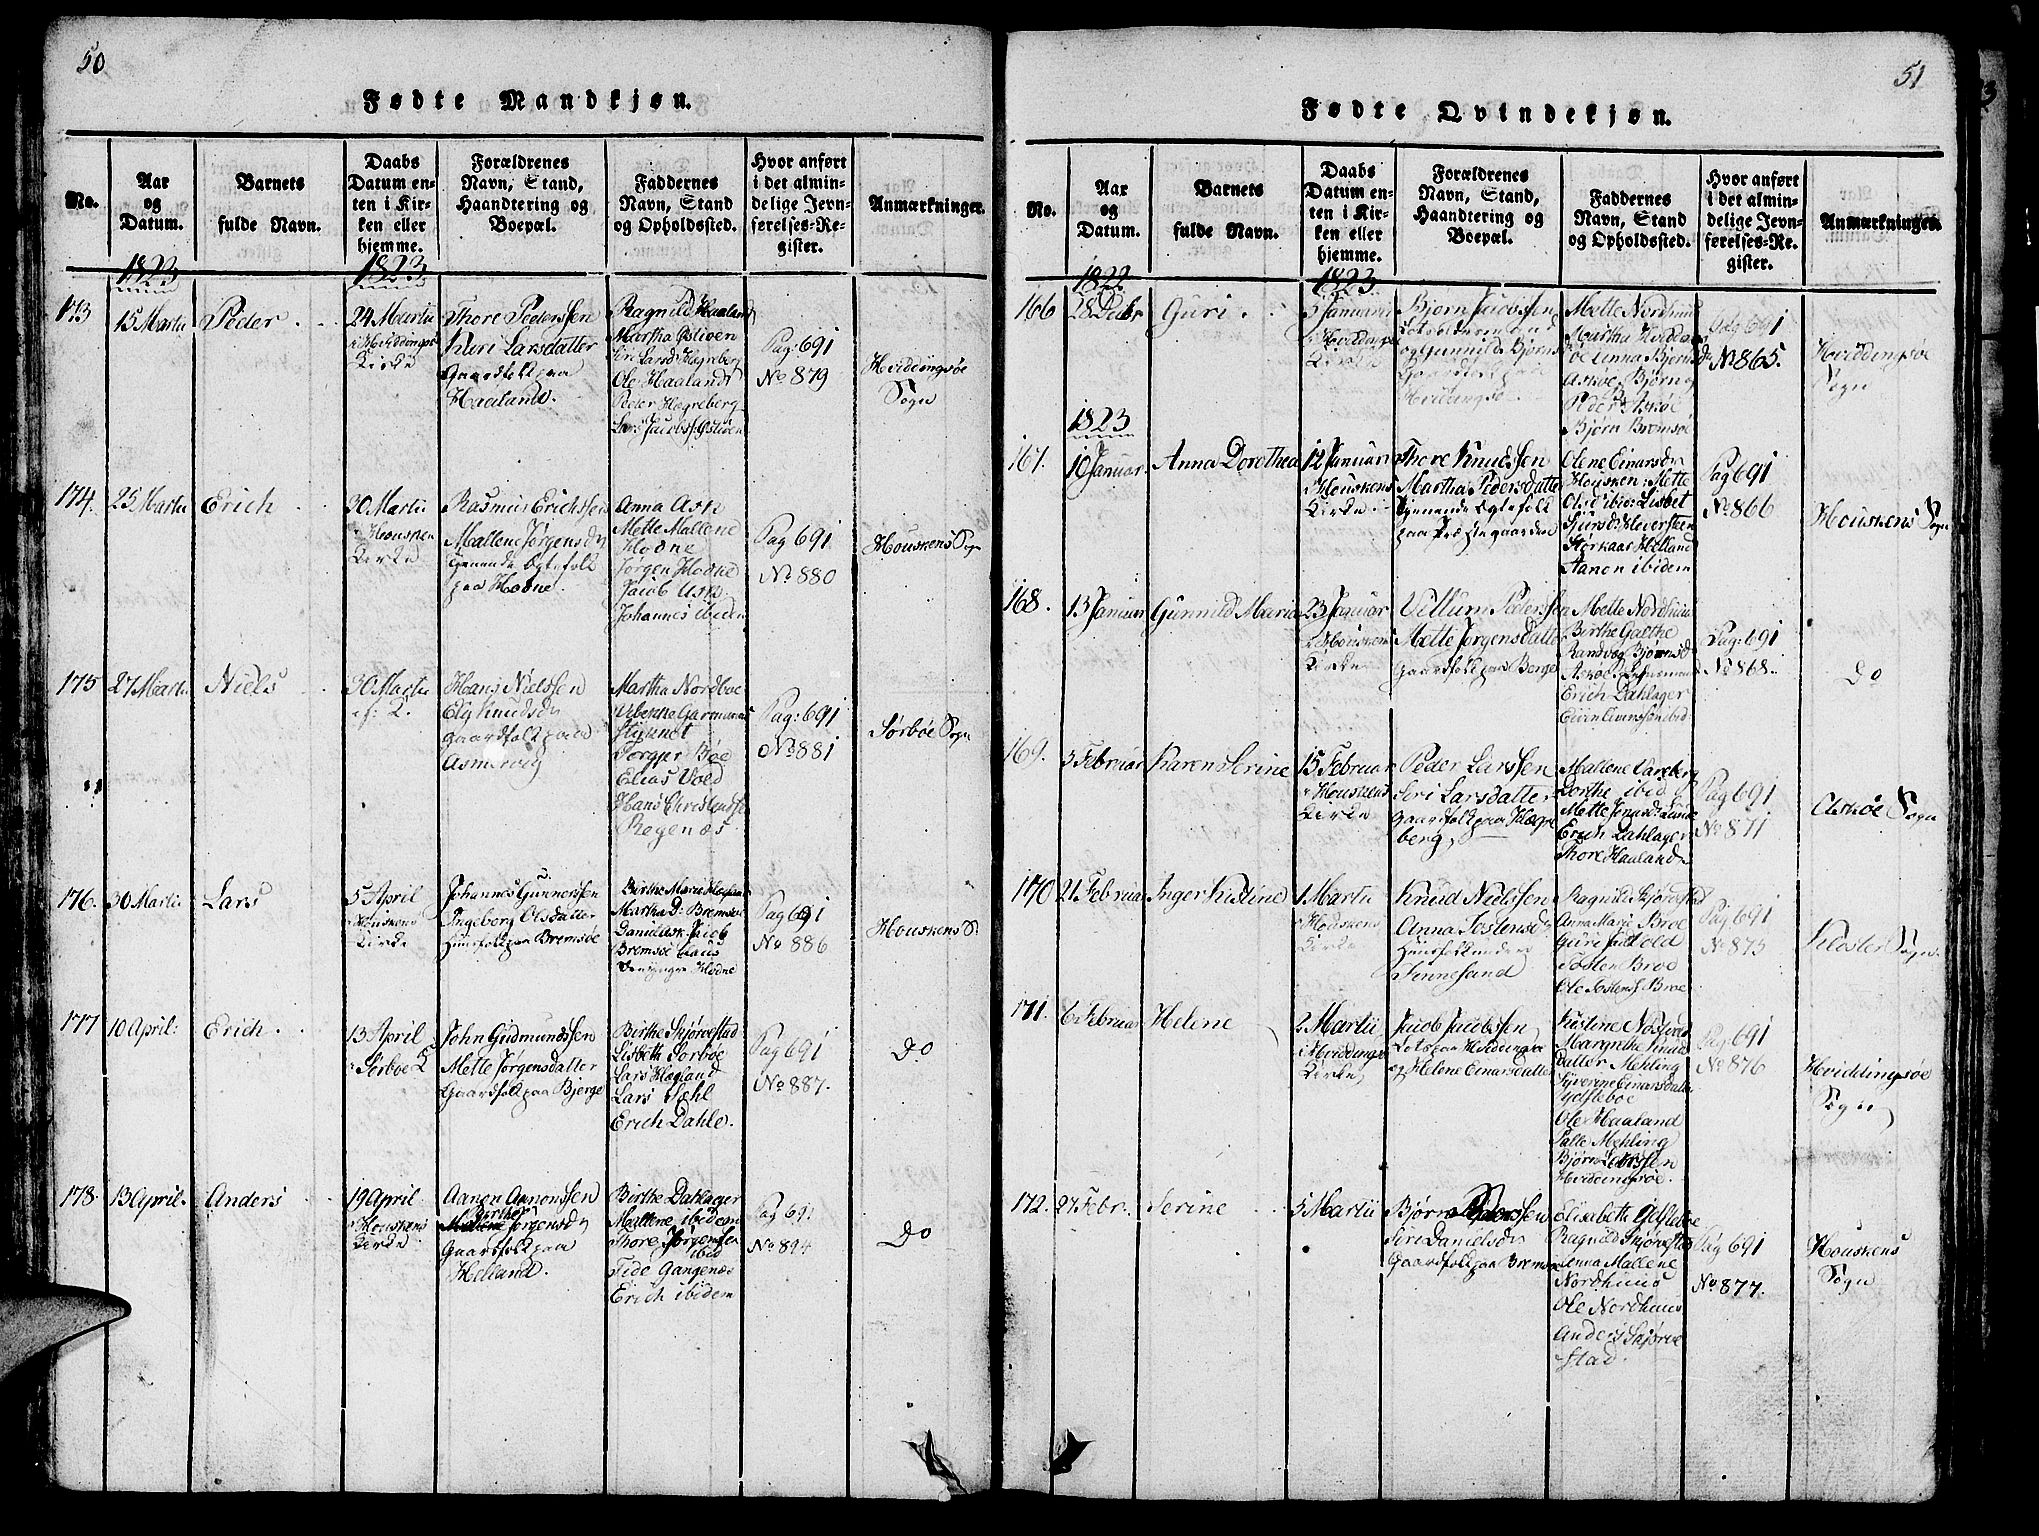 50
Fødte Mandkjøn.
No.
Aar
og
Datum.
Barnets
fulde Navn.
Daabs
Datum en-
ten i Kir-
ken eller
hjemme.
Forældrenes
Navn, Stand,
Haandtering og
Boepæl.
Faddernes
Navn, Stand
og Opholdssted.
Hvor anført
i det almin-
delige Jevn-
førelses-Re-
gister.
Anmærkninger.
1823
1823
173
15 Martii
Peder
24 Martii
i Hviddingsøe
Kirke
Thore Pedersen
Siri Larsdatter
Gaardfolk paa
Haaland.
Ragnild Haaland
Martha Østiven
Siri Larsd. Hegreberg
Ole Haaland
Peder Hegreberg
Lars Jacobs. Østiven
Pag: 691
No 879
Hviddingsøe
Sogn
174.
25 Martii
Erich
30 Martii
i Housken
Kirke
Rasmus Erichssen
Mallene Jørgensdr
tjenende Ægtefolk
paa Hodne
Anna Ask
Mette Mallene
Hodne
Jørgen Hodne
Jacob Ask
Johannes ibidem
Pag 691
No 880
Houskens Sogn
175
27 Martii
Niels
30 Martii
i s: K.
Hans Nielssen
Eli Knudsdr
Gaardfolk paa
Asmervig
Martha Nordboe
Elias Voed
Hans Christensen
Regenæs
Pag: 691
No 881
Sørbøe Sogn
176.
30 Martii
Lars
5 April
i Houskens
Kirke
Johannes Gunnersen
Ingeborg Olsdatter
Huusfolk paa Bremsøe
Birthe Marie Hægland
Martha D: Bremsøe
Daniel Ask Jacob
Bremsøe Claus
Pag 691
No 886
Houskens S.
177
10 April:
Erich
13 April
i Sørbøe K
John Gudmundssen
Mette Jørgensdatter
Gaardfolk paa Bjerge
Birthe Skjørvestad
Lisbeth Sørbøe
Lars Hægland
Lars Dahl
Erich Dahle.
Pag 691
No 887.
Do
178.
13 April.
Anders
19 April
i Houskens
Kirke
Aanen Aanonssen
Berthe
Jørgensdr
Gaardfolk paa
Helland.
Birthe Dahlager
Mallene ibidem
Thore Jørgensen
ibid
Tide Gangenæs
Erich ibidem
Pag 691
No 894
Do
51
Fødte Qvindekjøn.
No.
Aar
og
Datum.
Barnets
fulde Navn.
Daabs
Datum en-
ten i Kir-
ken eller
hjemme.
Forældrenes
Navn, Stand,
Haandtering og
Boepæl.
Faddernes
Navn, Stand
og Opholdssted.
Hvor anført
i det almin-
delige Jevn-
førelses-Re.
gister.
Anmærkninger.
1822
1823
166
28 Decbr
Guri
5 Januar
i Hviddingsøe
Kirke
Bjørn Jacobsen
og Gunnild Bjørnsdr
Gaardfolk paa
Hvidingsøe.
Mette Nordhuus
Martha Hviddings-
øe Anna Bjørnsdr
Askøe Bjørn og
Peder Askøe
Bjørn Bremsøe
Pag 691
No 865.
Hviddingsøe
Sogn
1823
167.
10 Januar
Anna Dorothea
12 Januar
i Houskens
Kirke
Thore Knudssen
Martha Pedersdatter
tjenende Ægtefolk
paa Præstegaarden
Olene Einarsdr
Housken: Mette
Olsd ibid: Lisbet
Storkaas Helland
Aanon ibidem
Pag 691
No 866
Houskens Sogn
168.
13 Januar
Gunnild Maria
23 Januar
i Houskens
Kirke
Villum Pedersen
Mette Jørgensdatter
Gaardfolk paa Berge
Mette Nordhuus
Birthe Galthe
Randveg Bjørnsd
Erich Dahlager
Pag: 691
No 868.
Do
169.
3 Februar
Karen Serine
15 Februar
i Houskens
Kirke
Peder Larssen
Siri Larsdatter
Gaardfolk paa Hægre
berg,
Mallene Vareberg
Dorthe ibid
Erich Dahlager
Thore Haaland
Pag 691
No 871
Askøe Sogn
170
21 Februar
Inger Kistine
1 Martii
i Houskens
Kirke
Knud Nielssen
Anna Tostensdr
Huusfolk under
Finnesand
Ragnild Skjørestad
Anna Marie Broe
Tosten Broe
Ole Tostens. Broe
Pag 691
No 875
Kloster Sogn.
171.
6 Februar
Helene
2 Martii
i Hviddingsøe
Kirke
Jacob Jacobssen
Lots paa Hviddingsøe
og Helene Einarsdatter
Maryrthe Knud-
datter Mehling
Syverine Einarsdatter
Ydstebøe
Ole Haaland
Palle Mehling
Bjørn Larssen
Hviddingsøe.
Pag: 691
No 876
Hviddingsøe
Sogn
172.
27 Febr.
Serine
5 Martii
Bjørn Pederssen
Siri Danielsdr
Gaardfolk paa Bremsøe
Elisabeth Ydstebøe
Ragnild Skjørestad
Anna Mallene
Nordhuus
Ole Nordhuus
Anders Skjørve
stad.
Pag 691
No 877.
Houskens
Sogn